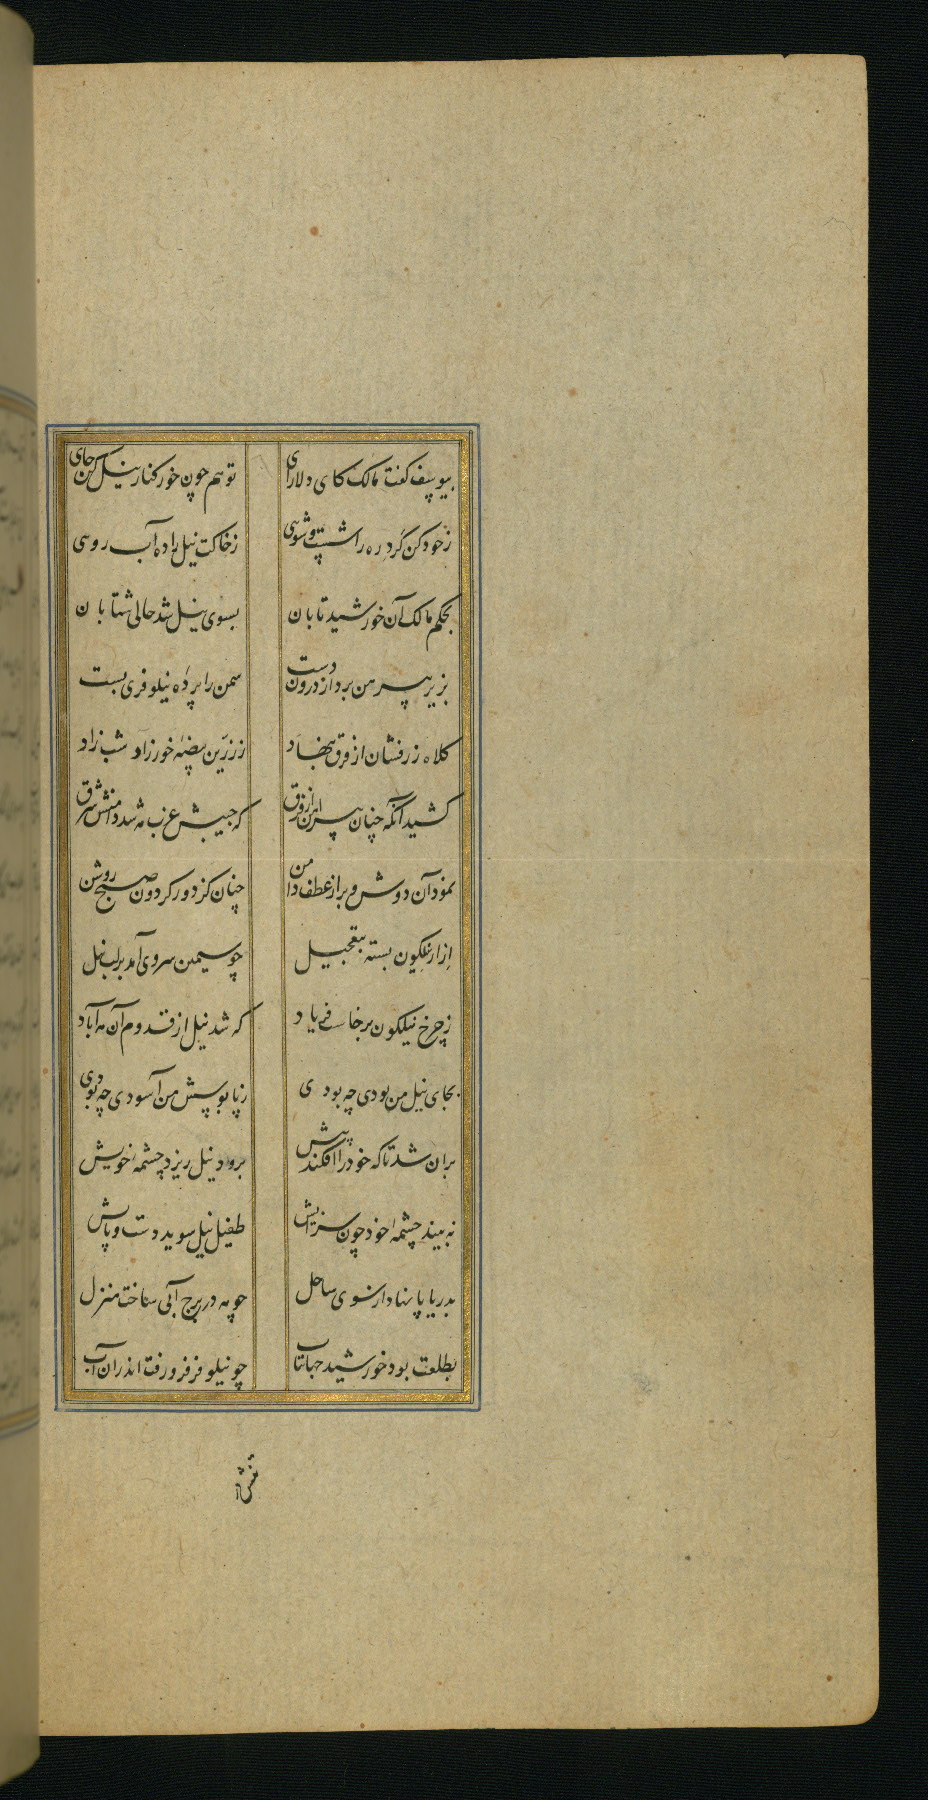 بیوسف گفت مالک کای دلارای تو هم چون خور کنار نیل کن جای
ز خود کن گرد ره را شست و شوئی ز خاکت نیل را ده آب روی
بحکم مالک آن خورشید تابان بسوی نیل شد حالی شتابان
بزیر پیرهن برد از درون دست سمن را پرده نیلوفری بست
کلاه زرفشان از فرق بنهاد ز زرین بیضهٔ خور زاد شب زاد
کشید آنگه چنان پیراهن از فرق که جیبش غرب مه شد دامنش شرق
نمود آن دوش و بر از عطف دامن چنان کز دور گردون صبح روشن
ازار نیلگون بسته بتعجیل چو سیمین سروی آمد بر لب نیل
ز چرخ نیلگون برخاست فریاد که شد نیل از قدوم آن مه آباد
بجای نیل من بودی چه بودی ز پابوسش من آسودی چه بودی
بران شد تا که خود را افکند پیش برود نیل ریزد چشمهٔ خویش
نه بیند چشمهٔ خود چون سزایش طفیل نیل شوید دست و پایش
بدریا پا نهاد از سوی ساحل چو مه در برج آبی ساخت منزل
بطلعت بود خورشید جهانتاب چو نیلوفر فرو رفت اندران آب
تنش از